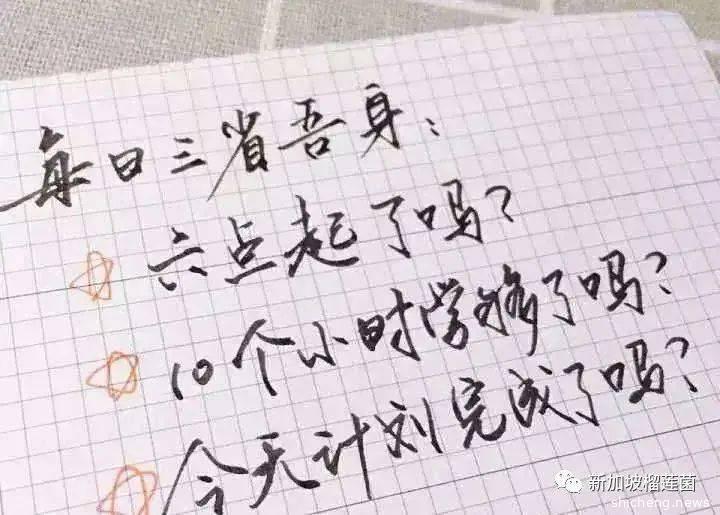 每日三省吾身：
六点起了吗？
10个小时学够了吗？
今天计划完成了吗？
新加坡榴莲菌
shicheng.news